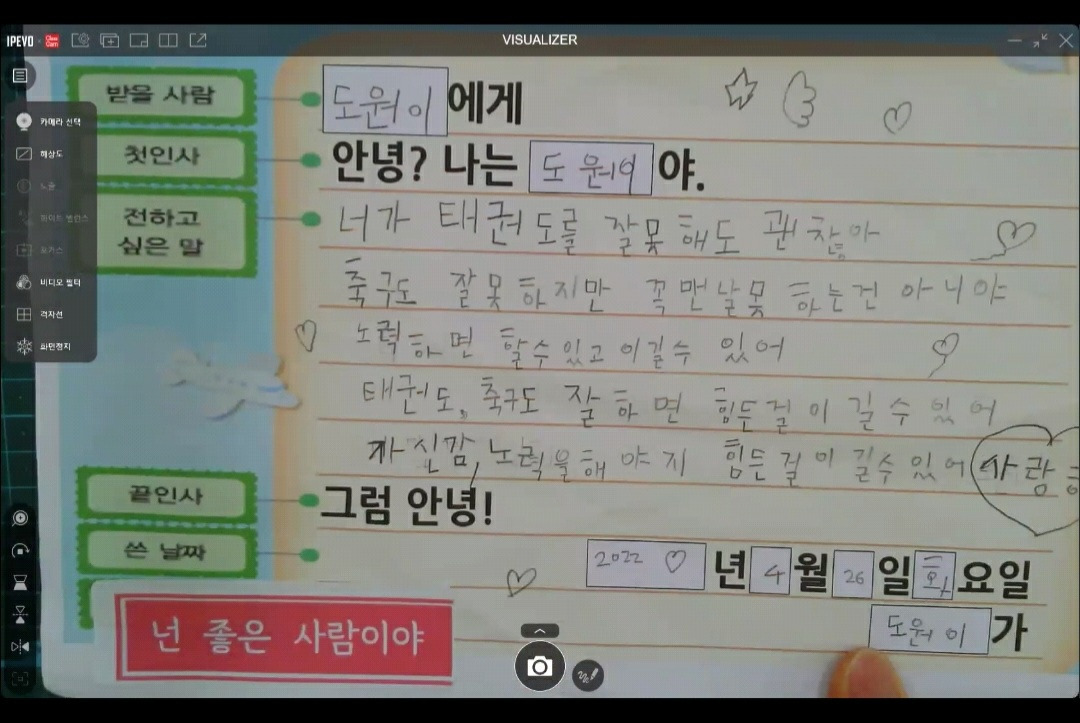 IPEVO
VISUALIZER
카메라 선택
해상도
노출
화이트 밸런스
포커스
비디오 필터
격자선
화면정지
받을 사람
도원이에게
첫인사
안녕? 나는 도원이야.
전하고
싶은 말
너가 태권도를 잘못해도 괜찮아
축구도 잘못하지만 꼭맨날못하는건 아니야
노력하면 할수있고 이길수 있어
태권도, 축구도 잘하면 힘든걸 이길수있어
자신감, 노력을해야지 힘든걸이길수있어 사랑해
끝인사
그럼 안녕!
쓴 날짜
2022 ♡년 4월 26일 화요일
도원이가
넌 좋은 사람이야